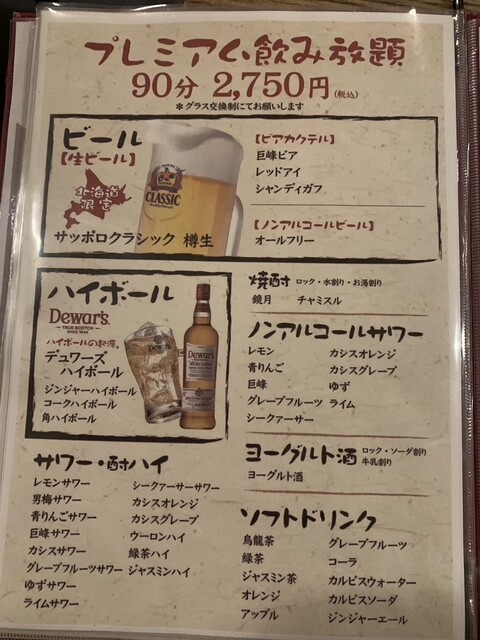 プレミアム飲み放題
90分 2,750円(税込)
＊グラス交換制にてお願いします
ビール
【生ビール】
北海道
限定
CLASSIC
サッポロクラシック 樽生
【ビアカクテル】
巨峰ビア
レッドアイ
シャンディガフ
【ノンアルコールビール】
オールフリー
ハイボール
Dewar's
TRUE SCOTCH
SINCE 1846
ハイボールのお酒。
デュワーズ
ハイボール
ジンジャーハイボール
コークハイボール
角ハイボール
Dewar's
Dewar's
White Label
焼酎 ロック・水割り・お湯割り
鏡月 チャミスル
ノンアルコールサワー
レモン カシスオレンジ
青りんご カシスグレープ
巨峰 ゆず
グレープフルーツ ライム
シークァーサー
ヨーグルト酒 ロック・ソーダ割り
牛乳割り
ヨーグルト酒
サワー・酎ハイ
レモンサワー シークァーサーサワー
男梅サワー カシスオレンジ
青りんごサワー カシスグレープ
巨峰サワー ウーロンハイ
カシスサワー 緑茶ハイ
グレープフルーツサワー ジャスミンハイ
ゆずサワー
ライムサワー
ソフトドリンク
烏龍茶 グレープフルーツ
緑茶 コーラ
ジャスミン茶 カルピスウォーター
オレンジ カルピスソーダ
アップル ジンジャーエール